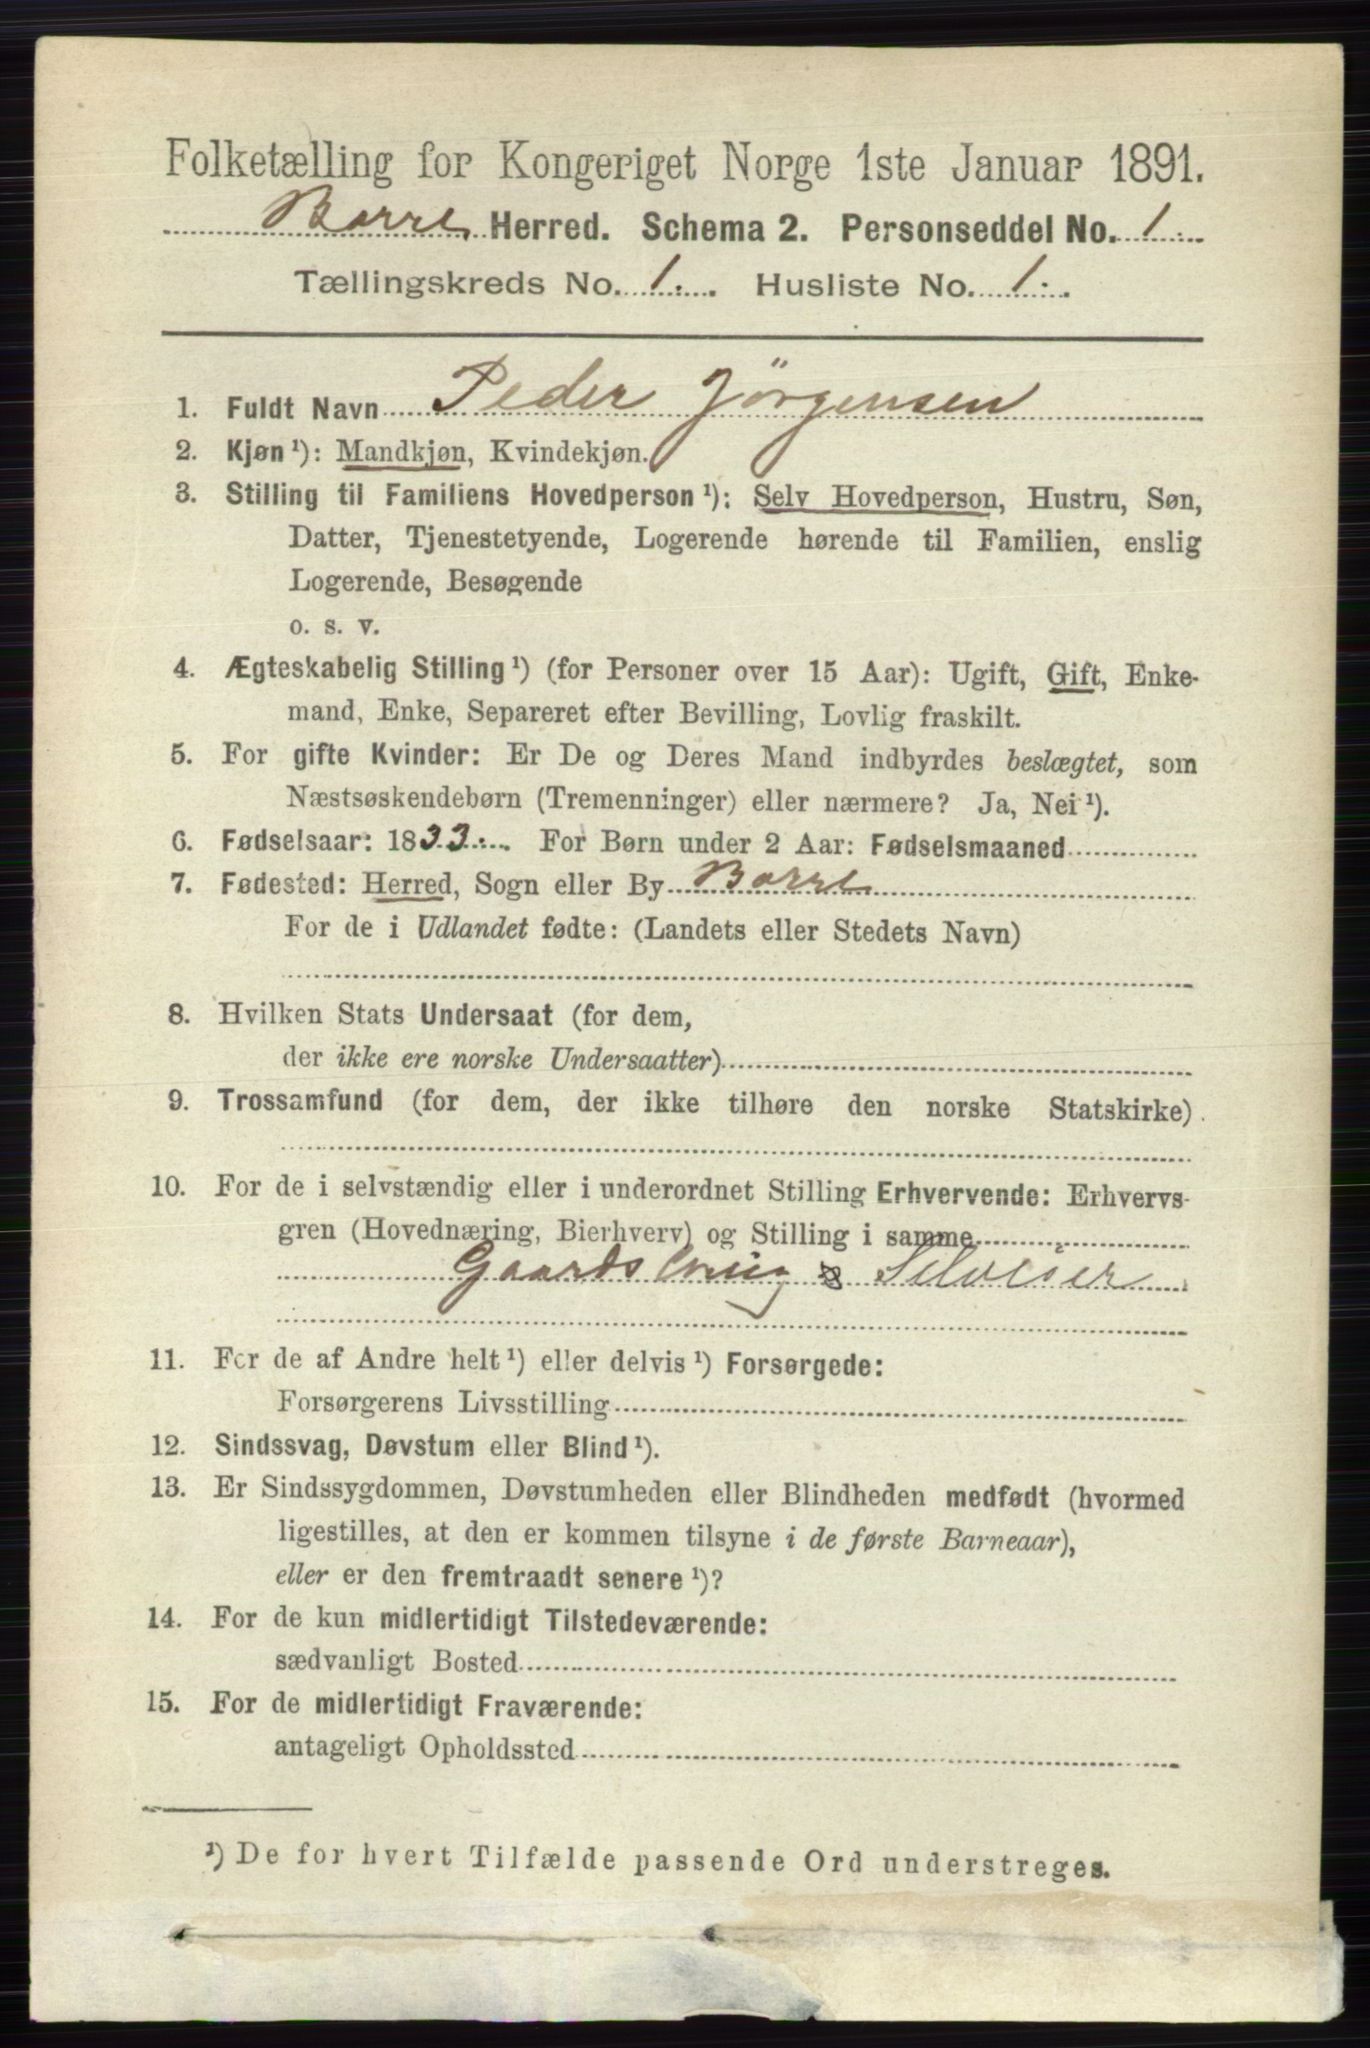 Folketælling for Kongeriget Norge 1ste Januar 1891.
Borre Herred. Schema 2. Personseddel No. 1.
Tællingskreds No. 1. Husliste No. 1.
1. Fuldt Navn Peder Jörgensen
2. Kjøn ¹): Mandkjøn, Kvindekjøn.
3. Stilling til Familiens Hovedperson ¹): Selv Hovedperson, Hustru, Søn,
Datter, Tjenestetyende, Logerende hørende til Familien, enslig
Logerende, Besøgende
o. s. v.
4. Ægteskabelig Stilling ¹) (for Personer over 15 Aar): Ugift, Gift, Enke-
mand, Enke, Separeret efter Bevilling, Lovlig fraskilt.
5. For gifte Kvinder: Er De og Deres Mand indbyrdes beslægtet, som
Næstsøskendebørn (Tremenninger) eller nærmere? Ja, Nei ¹).
6. Fødselsaar: 1833. For Børn under 2 Aar: Fødselsmaaned
7. Fødested: Herred, Sogn eller By Borre
For de i Udlandet fødte: (Landets eller Stedets Navn)
8. Hvilken Stats Undersaat (for dem,
der ikke ere norske Undersaatter)
9. Trossamfund (for dem, der ikke tilhøre den norske Statskirke).
10. For de i selvstændig eller i underordnet Stilling Erhvervende: Erhvervs-
gren (Hovednæring, Bierhverv) og Stilling i samme
Gaardsbrug Selveier
11. For de af Andre helt ¹) eller delvis ¹) Forsørgede:
Forsørgerens Livsstilling
12. Sindssvag, Døvstum eller Blind ¹).
13. Er Sindssygdommen, Døvstumheden eller Blindheden medfødt (hvormed
ligestilles, at den er kommen tilsyne i de første Barneaar),
eller er den fremtraadt senere ¹)?
14. For de kun midlertidigt Tilstedeværende:
sædvanligt Bosted
15. For de midlertidigt Fraværende:
antageligt Opholdssted
¹) De for hvert Tilfælde passende Ord understreges.